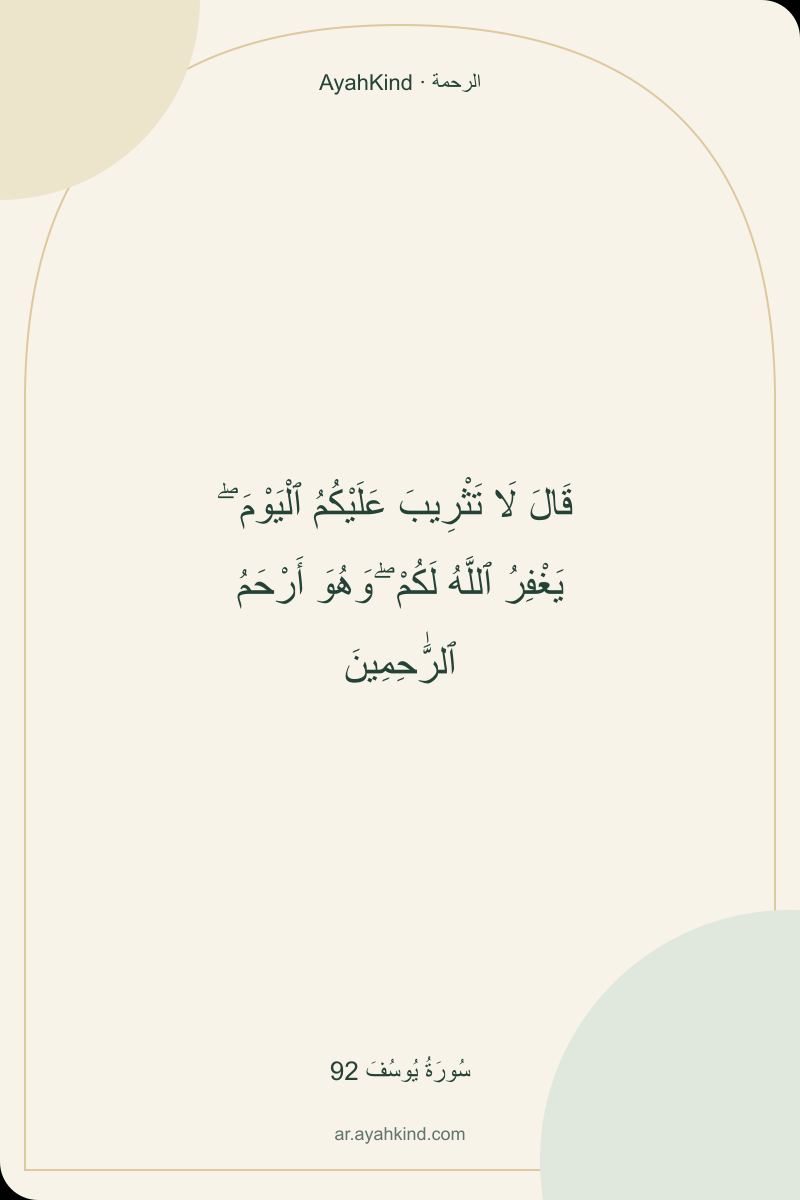 AyahKind · الرحمة
قَالَ لَا تَثْرِيبَ عَلَيْكُمُ ٱلْيَوْمَ ۖ
يَغْفِرُ ٱللَّهُ لَكُمْ ۖ وَهُوَ أَرْحَمُ
ٱلرَّٰحِمِينَ
سُورَةُ يُوسُفَ 92
ar.ayahkind.com